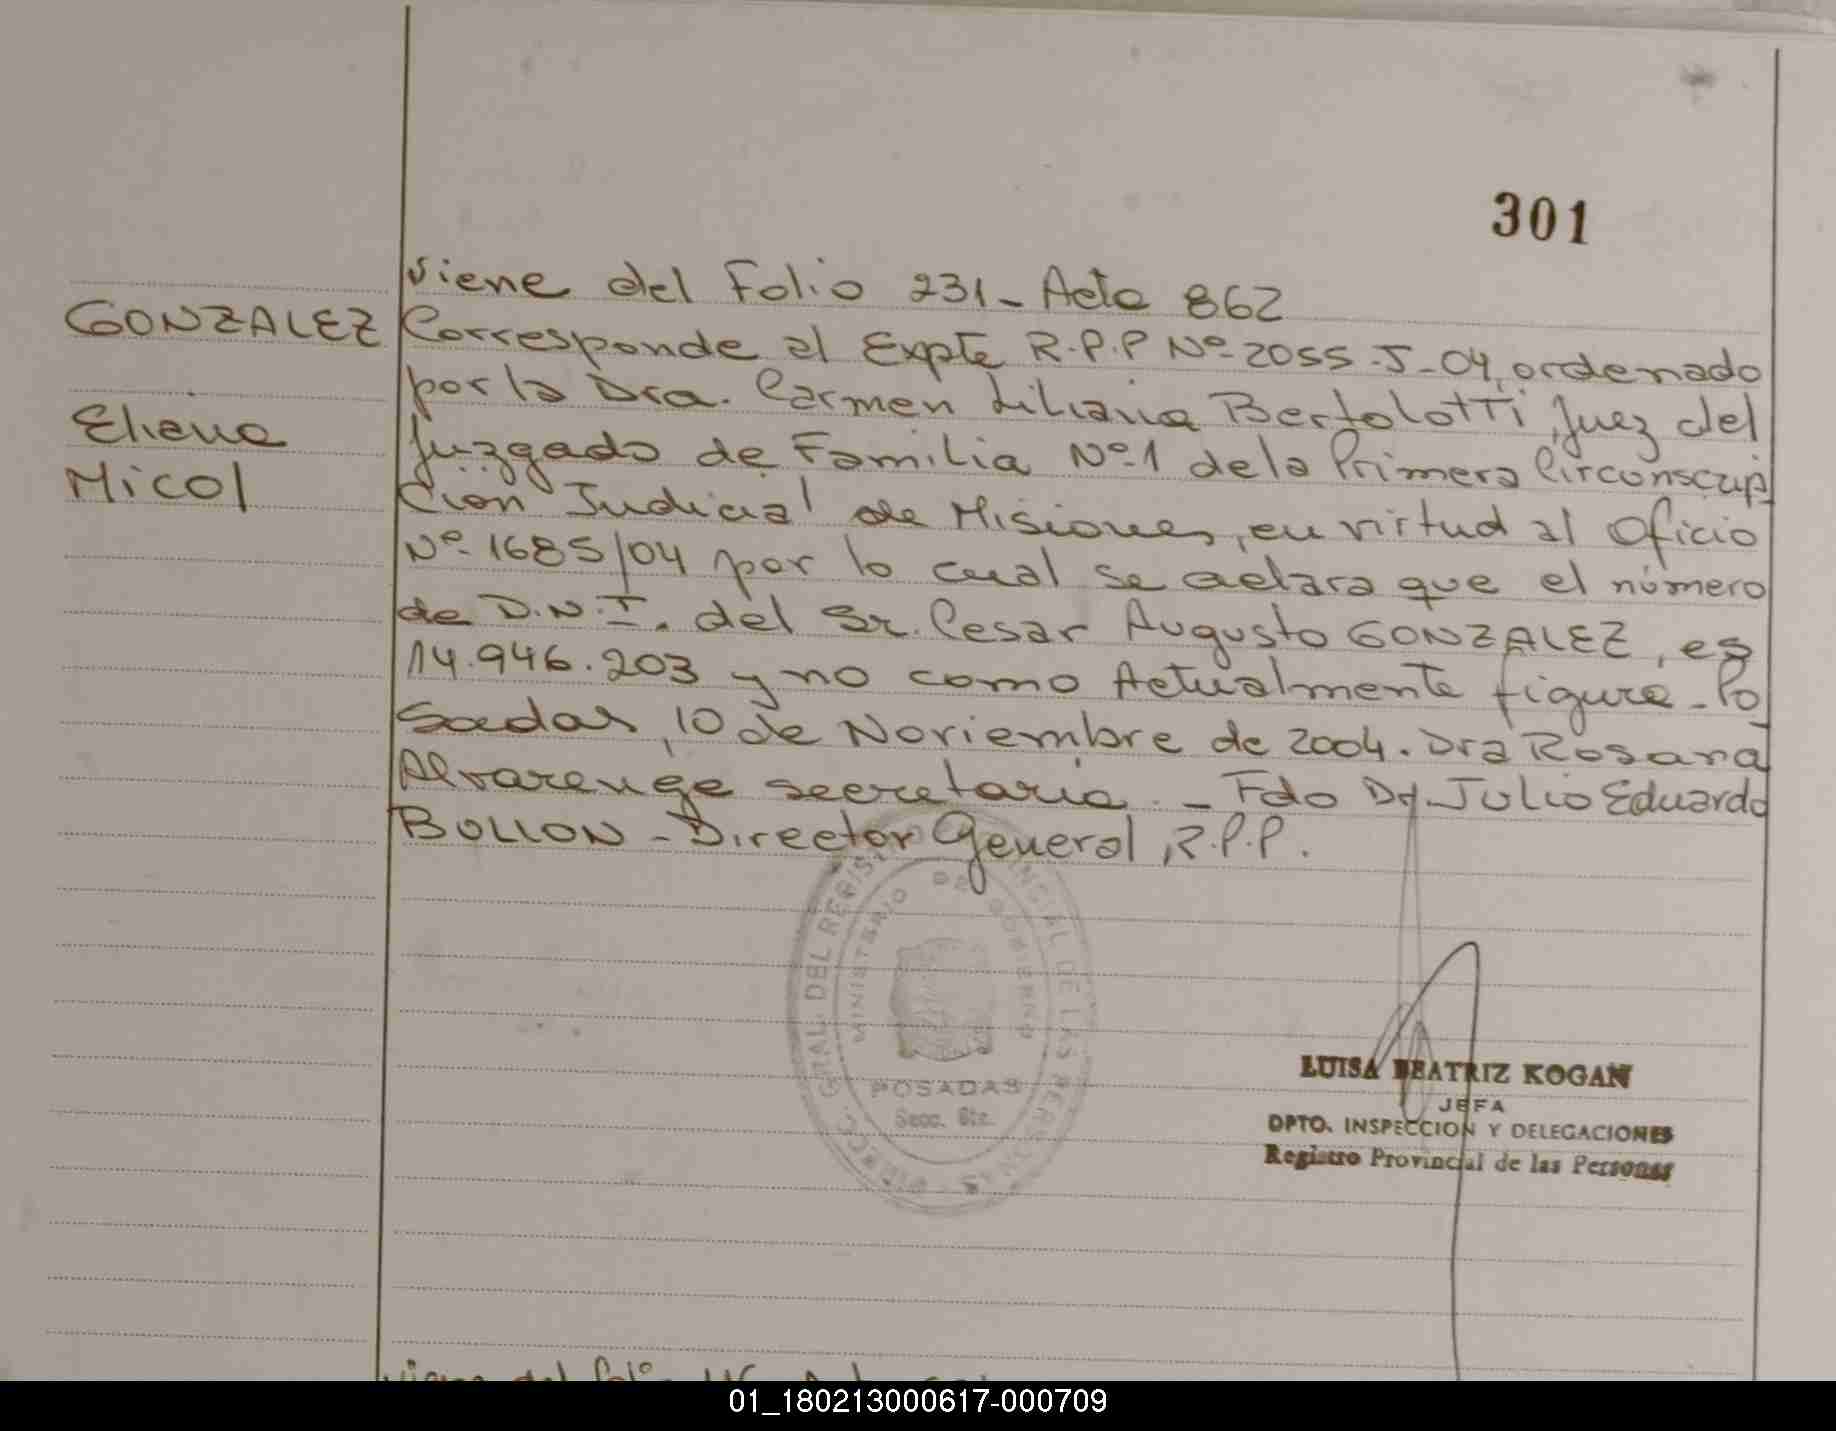 301
Viene del Folio 231 - Acta 862
GONZALEZ
Eliana
Micol
Corresponde al Expte R.P.P Nº 2055-J-04, ordenado
por la Dra. Carmen Liliana Bertolotti, Juez del
Juzgado de Familia Nº 1 de la Primera Circonscrip
cion Judicial de Misiones, en virtud al oficio
Nº 1685/04 por lo cual se aclara que el número
de D.N.I. del Sr. Cesar Augusto GONZALEZ, es
14.946.203 y no como Actualmente figura - Po
sadas, 10 de Noviembre de 2004. Dra Rosana
Alvarenga secretaria. - Fdo Dn. Julio Eduardo
BOLLON - Director General R.P.P.
MINISTERIO DE GOBIERNO
POSADAS
LUISA BEATRIZ KOGAN
JEFA
DPTO. INSPECCION Y DELEGACIONES
Registro Provincial de las Personas
01_180213000617-000709